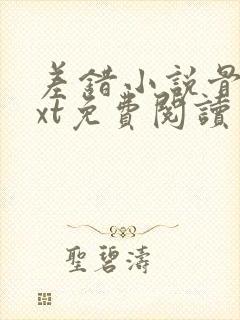 差錯小説骨
xt免費閱讀
聖碧濤